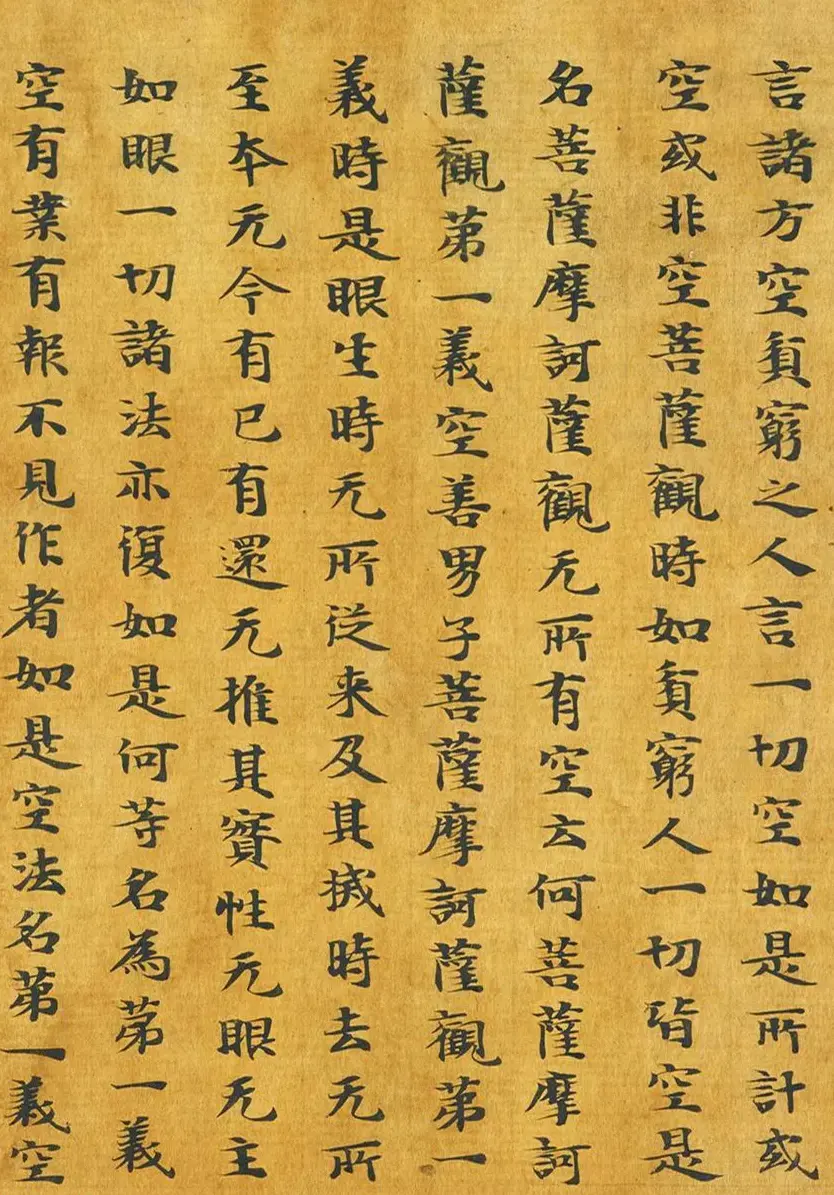 言諸方空貧窮之人言一切空如是所計或
空或非空菩薩觀時如貧窮人一切皆空是
名菩薩摩訶薩觀无所有空云何菩薩摩訶
薩觀第一義空善男子菩薩摩訶薩觀第一
義時是眼生時无所從来及其滅時去无所
至本无今有已有還无推其實性无眼无主
如眼一切諸法亦復如是何等名為第一義
空有業有報不見作者如是空法名第一義空